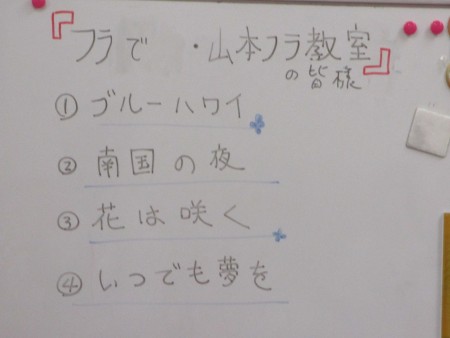 『フラで ・山本フラ教室
の皆様』
① ゴルーハワイ
② 南国の夜
③ 花は咲く
④ いつでも夢を